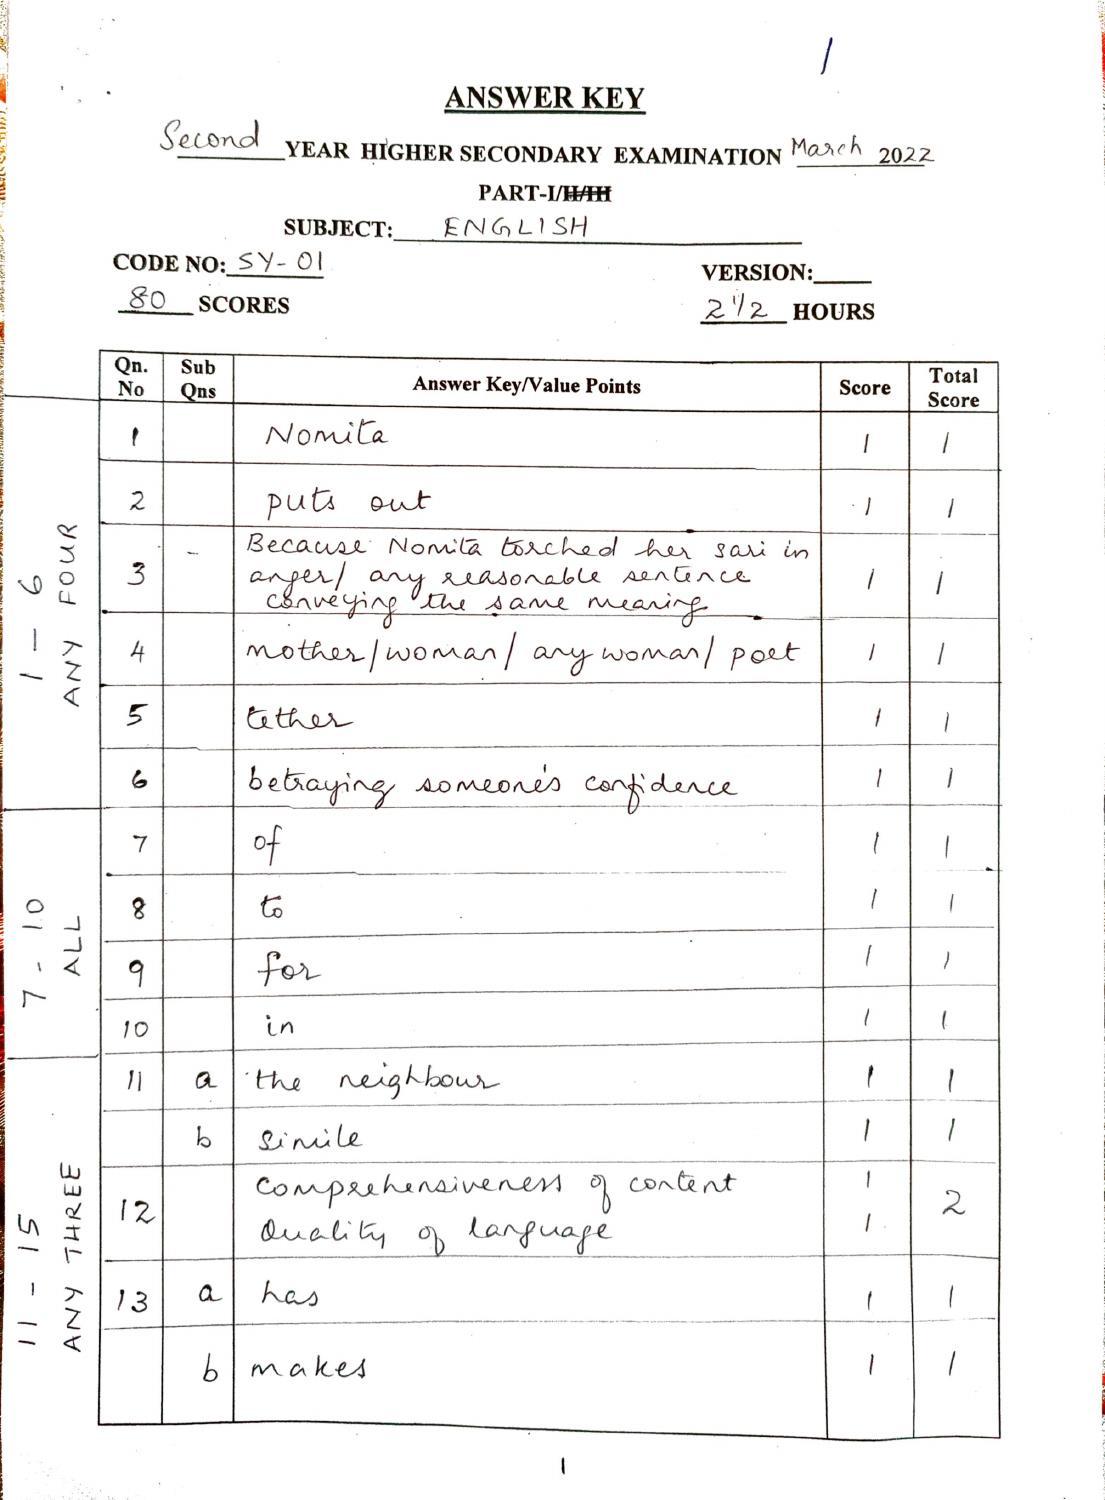 1
ANSWER KEY
Second YEAR HIGHER SECONDARY EXAMINATION March 2022
PART-I/II/III
SUBJECT: ENGLISH
CODE NO: SY-01
VERSION:
80 SCORES
2 1/2 HOURS
Qn. No Sub Qns Answer Key/Value Points Score Total Score
1 - 6 ANY FOUR
1 Nomita 1 1
2 puts out 1 1
3 - Because Nomita torched her sari in
anger/ any reasonable sentence
conveying the same meaning 1 1
4 mother/woman/ any woman/ poet 1 1
5 tether 1 1
6 betraying someone's confidence 1 1
7 - 10 ALL
7 of 1 1
8 to 1 1
9 for 1 1
10 in 1 1
11 - 15 ANY THREE
11 a the neighbour 1 1
b simile 1 1
12 Comprehensiveness of content 1
Quality of language 1 2
13 a has 1 1
b makes 1 1
1